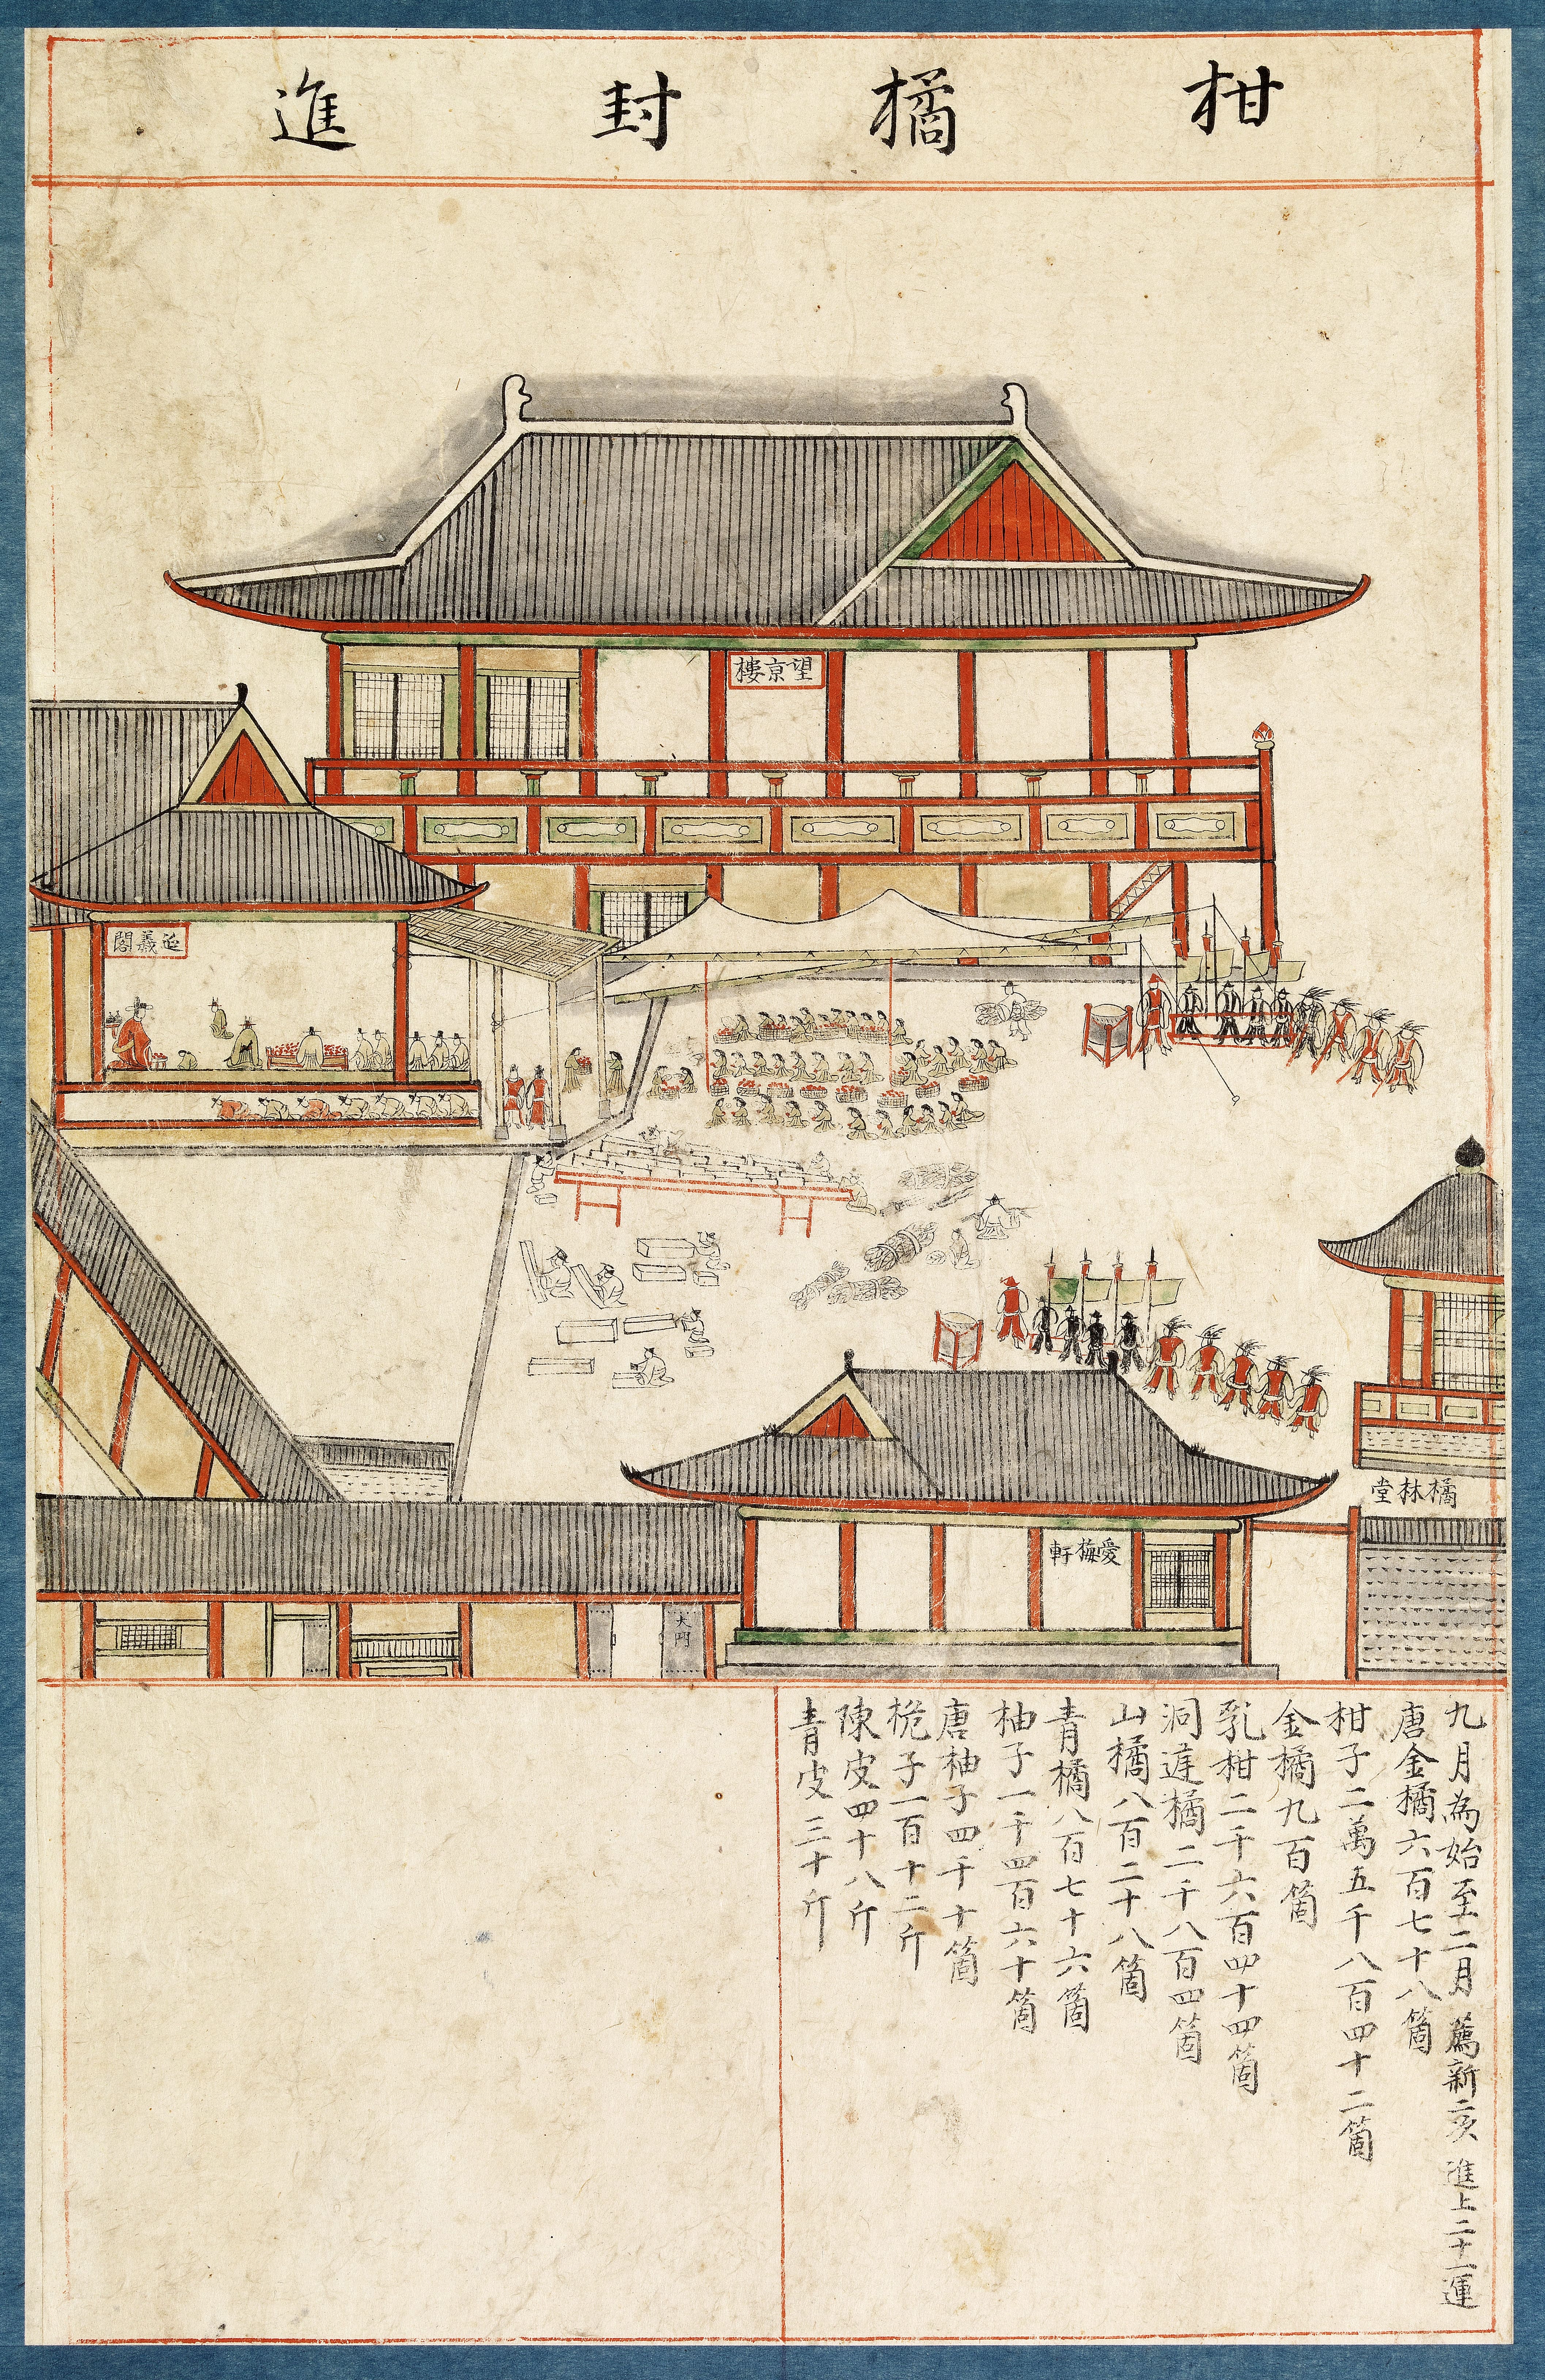 柑橘封進
望京樓
延義閣
橘林堂
愛梅軒
大門
九月為始至二月 薦新二次 進上二十一運
唐金橘六百七十八箇
柑子二萬五千八百四十二箇
金橘九百箇
乳柑二千六百四十四箇
洞庭橘二千八百四箇
山橘八百二十八箇
青橘八百七十六箇
柚子一千四百六十箇
唐柚子四千十箇
桅子一百十二斤
陳皮四十八斤
青皮三十斤